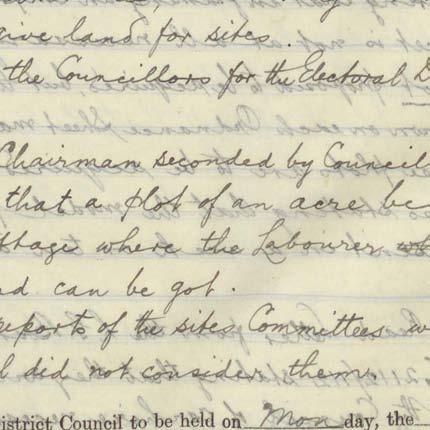 give land for sites.
the Councillors for the Electoral D
Chairman seconded by Council
that a plot of an acre be
ttage where the Labourer
nd can be got.
reports of the sites Committees w
l did not consider them.
istrict Council to be held on Mon day, the